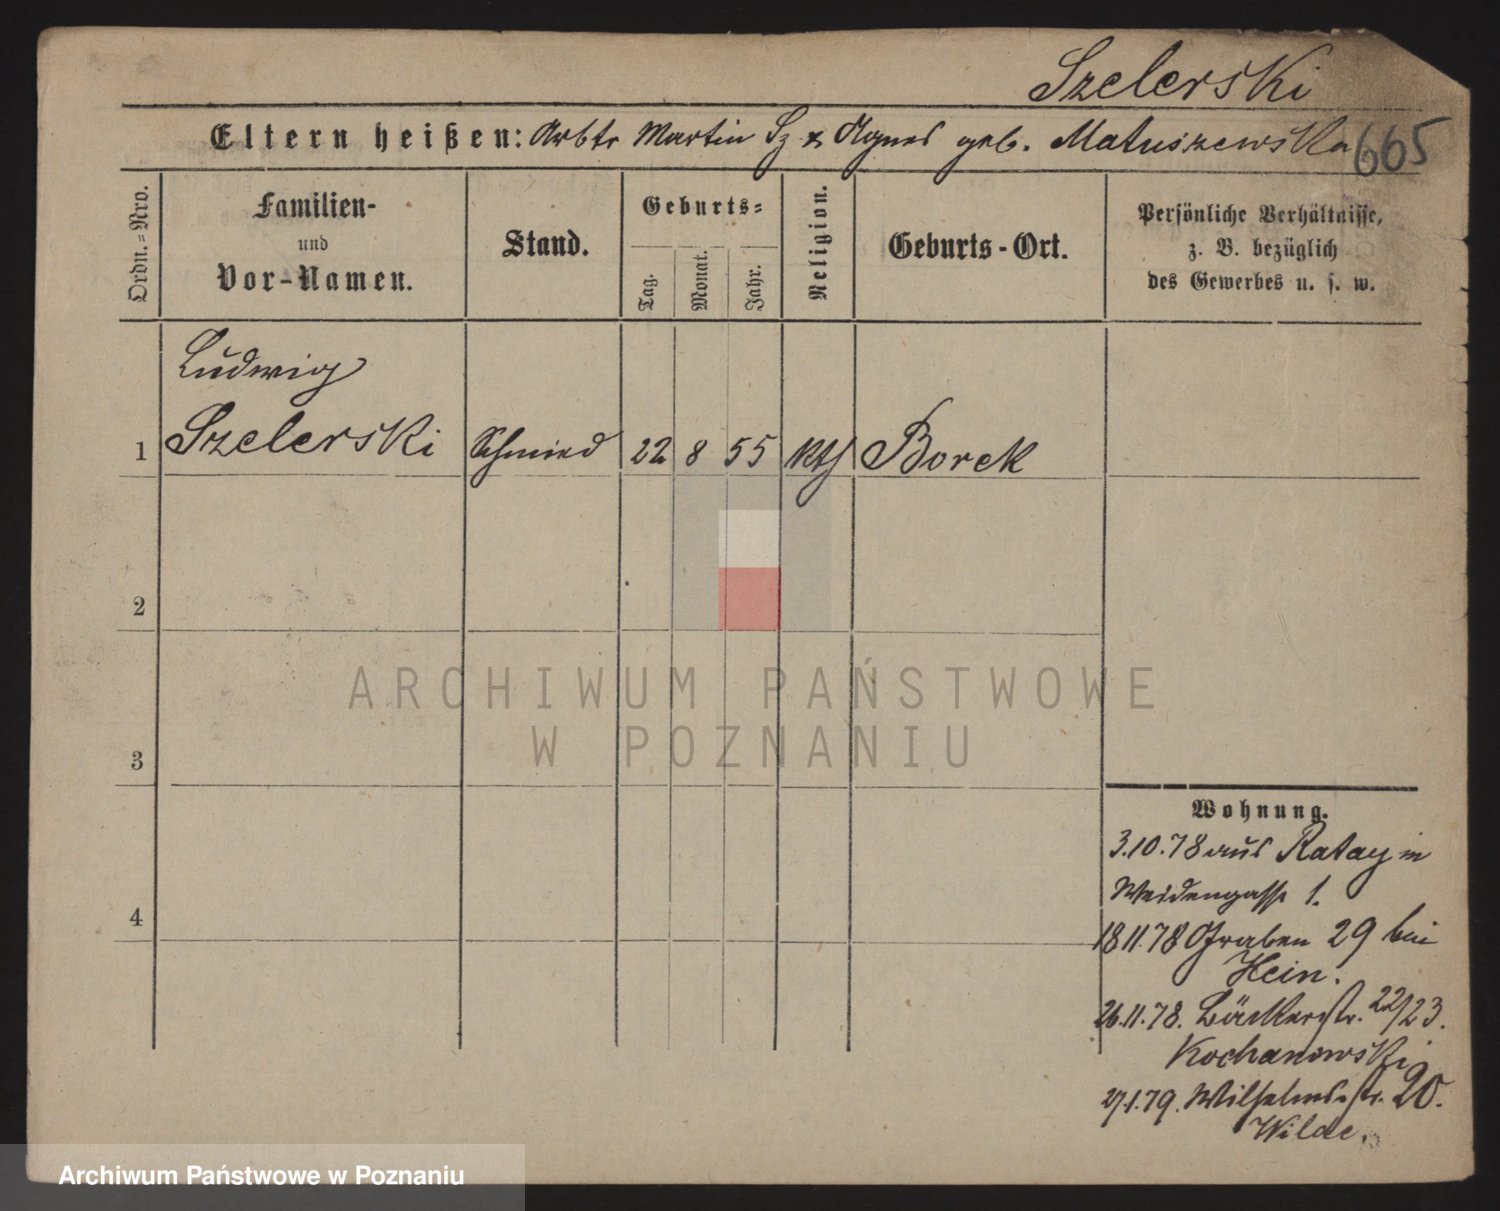 Szelerski
Eltern heißen: Arbtr Martin Sz & Agnes geb. Matuszewska
665
Ordn.=Nro.
Familien-
und
Vor-Namen.
Stand.
Geburts=
Tag.
Monat.
Jahr.
Religion.
Geburts-Ort.
Persönliche Verhältnisse,
z. B. bezüglich
des Gewerbes u. s. w.
Ludwig
1 Szelerski Schmied 22 8 55 kth Borek
2
3
4
ARCHIWUM PAŃSTWOWE
W POZNANIU
Wohnung.
3.10.78 aus Ratay in
Weidengasse 1.
18 11.78 Graben 29 bei
Hein.
26.11.78. Bäckerstr. 22/23.
Kochanowski
27.1.79. Wilhelmsstr. 20.
Wilde.
Archiwum Państwowe w Poznaniu